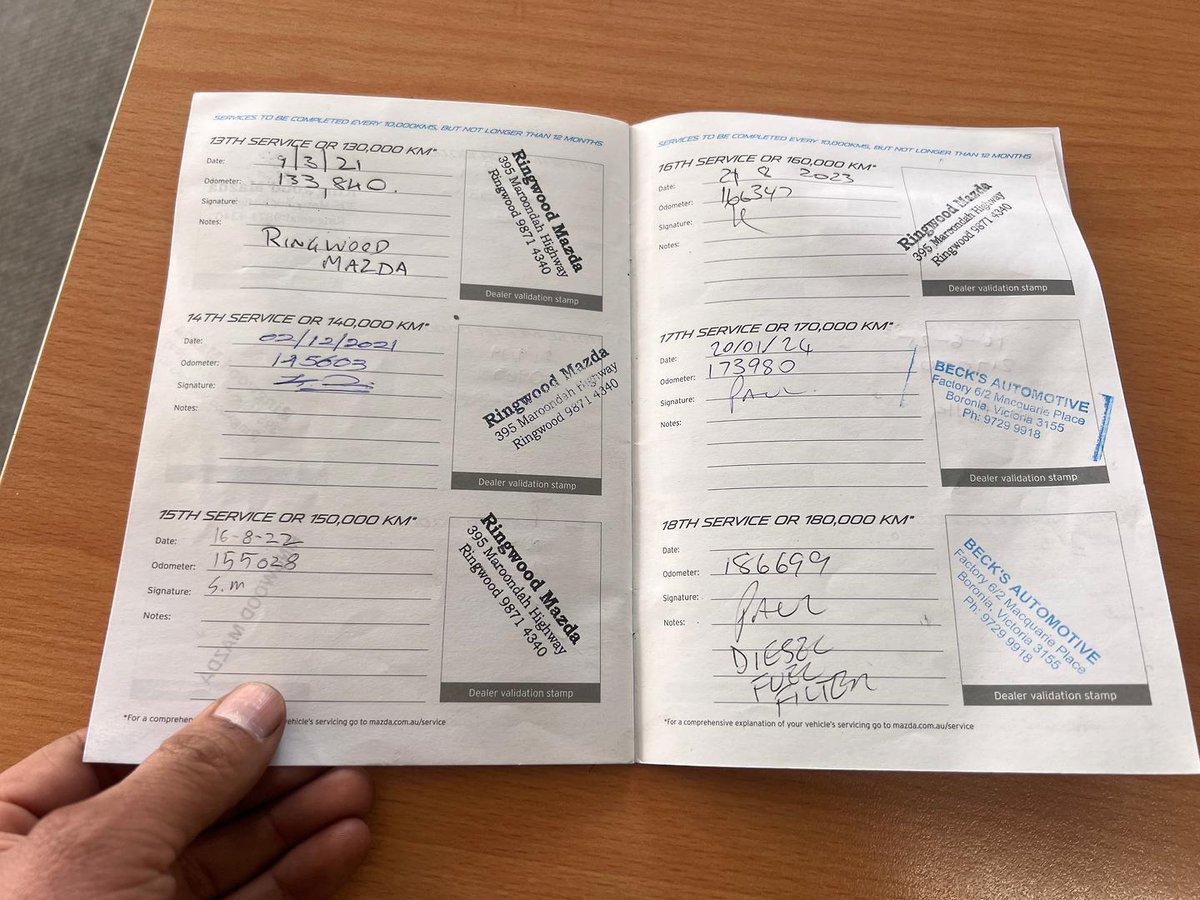 SERVICES TO BE COMPLETED EVERY 10,000KMS, BUT NOT LONGER THAN 12 MONTHS
13TH SERVICE OR 130,000 KM*
Date: 9/3/21
Odometer: 133,840.
Signature:
Notes:
RINGWOOD
MAZDA
Ringwood Mazda
395 Maroondah Highway
Ringwood 9871 4340
Dealer validation stamp
14TH SERVICE OR 140,000 KM*
Date: 02/12/2021
Odometer: 145603
Signature:
Notes:
Ringwood Mazda
395 Maroondah Highway
Ringwood 9871 4340
Dealer validation stamp
15TH SERVICE OR 150,000 KM*
Date: 16-8-22
Odometer: 155028
Signature: S.M
Notes:
Ringwood Mazda
395 Maroondah Highway
Ringwood 9871 4340
Dealer validation stamp
*For a comprehe vehicle's servicing go to mazda.com.au/service
SERVICES TO BE COMPLETED EVERY 10,000KMS, BUT NOT LONGER THAN 12 MONTHS
16TH SERVICE OR 160,000 KM*
Date: 2023
Odometer: 166347
Signature:
Notes:
Ringwood Mazda
395 Maroondah Highway
Ringwood 9871 4340
Dealer validation stamp
17TH SERVICE OR 170,000 KM*
Date: 20/01/24
Odometer: 173980
Signature: PAUL
Notes:
BECK'S AUTOMOTIVE
Factory 6/2 Macquarie Place
Boronia, Victoria 3155
Ph: 9729 9918
Dealer validation stamp
18TH SERVICE OR 180,000 KM*
Date:
Odometer: 186699
Signature: PAUL
Notes:
DIESEL
FUEL
FILTER
BECK'S AUTOMOTIVE
Factory 6/2 Macquarie Place
Boronia, Victoria 3155
Ph: 9729 9918
Dealer validation stamp
*For a comprehensive explanation of your vehicle's servicing go to mazda.com.au/service